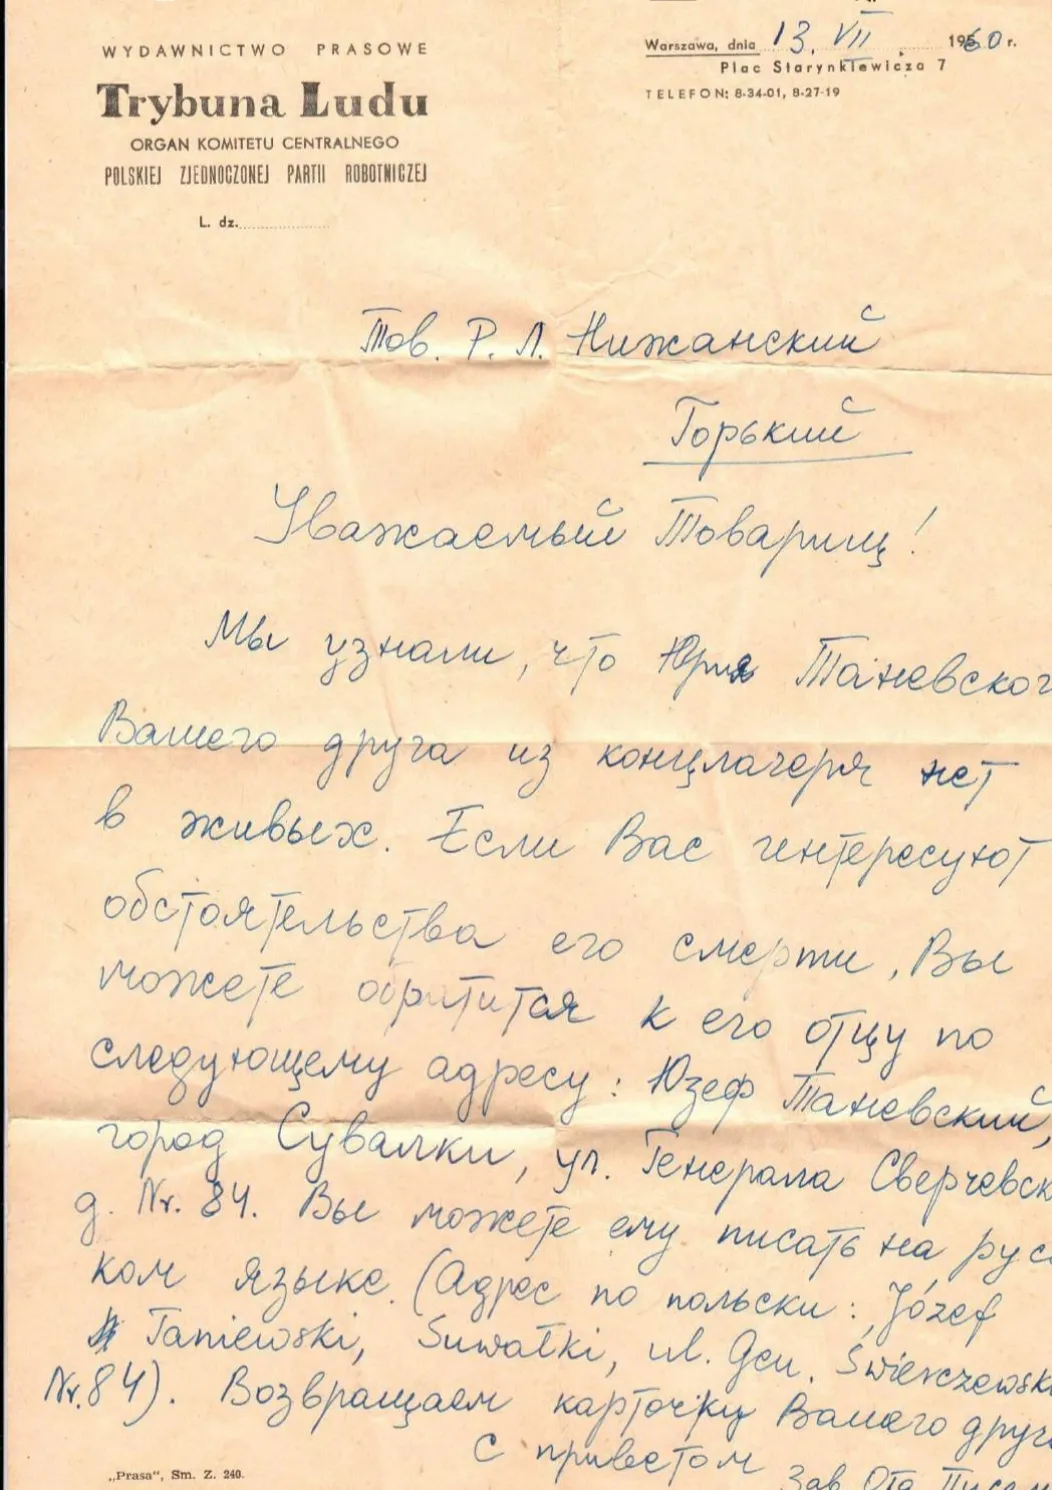 WYDAWNICTWO PRASOWE
Trybuna Ludu
ORGAN KOMITETU CENTRALNEGO
POLSKIEJ ZJEDNOCZONEJ PARTII ROBOTNICZEJ
L. dz.
Warszawa, dnia 13. VII 1960 r.
Plac Starynkiewicza 7
TELEFON: 8-34-01, 8-27-19
Тов. Р. Л. Нижанский
Горький
Уважаемый Товарищ!
Мы узнали, что Юрия Таневског
Вашего друга из концлагеря нет
в живых. Если Вас интересуют
обстоятельства его смерти, Вы
можете обратится к его отцу по
следующему адресу: Юзеф Таневский,
город Сувалки, ул. Генерала Сверчевск
д. Nr. 84. Вы можете ему писать на русс
ком языке. (Адрес по польски: Józef
Taniewski, Suwałki, ul. Gen. Świerczewsk
Nr. 84). Возвращаем карточку Вашего друг
С приветом
Зав Отд Писем
„Prasa“, Sm. Z. 240.